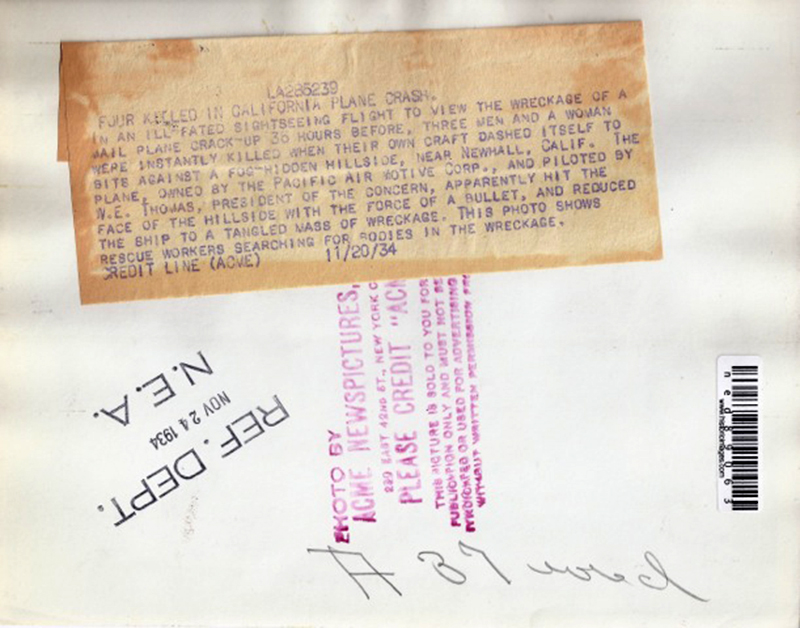 LA285239
FOUR KILLED IN CALIFORNIA PLANE CRASH.
IN AN ILL-FATED SIGHTSEEING FLIGHT TO VIEW THE WRECKAGE OF A
MAIL PLANE CRACK-UP 36 HOURS BEFORE, THREE MEN AND A WOMAN
WERE INSTANTLY KILLED WHEN THEIR OWN CRAFT DASHED ITSELF TO
BITS AGAINST A FOG-HIDDEN HILLSIDE, NEAR NEWHALL, CALIF. THE
PLANE, OWNED BY THE PACIFIC AIR MOTIVE CORP., AND PILOTED BY
W.E. THOMAS, PRESIDENT OF THE CONCERN, APPARENTLY HIT THE
FACE OF THE HILLSIDE WITH THE FORCE OF A BULLET, AND REDUCED
THE SHIP TO A TANGLED MASS OF WRECKAGE. THIS PHOTO SHOWS
RESCUE WORKERS SEARCHING FOR BODIES IN THE WRECKAGE.
CREDIT LINE (ACME) 11/20/34
PHOTO BY
ACME NEWSPICTURES,
220 EAST 42ND ST., NEW YORK C
PLEASE CREDIT "ACM
THIS PICTURE IS SOLD TO YOU FOR
PUBLICATION ONLY AND MUST NOT BE
SYNDICATED OR USED FOR ADVERTISING
WITHOUT WRITTEN PERMISSION
REF. DEPT.
NOV 24 1934
N.E.A.
ned89063
www.historicimages.com
A 37